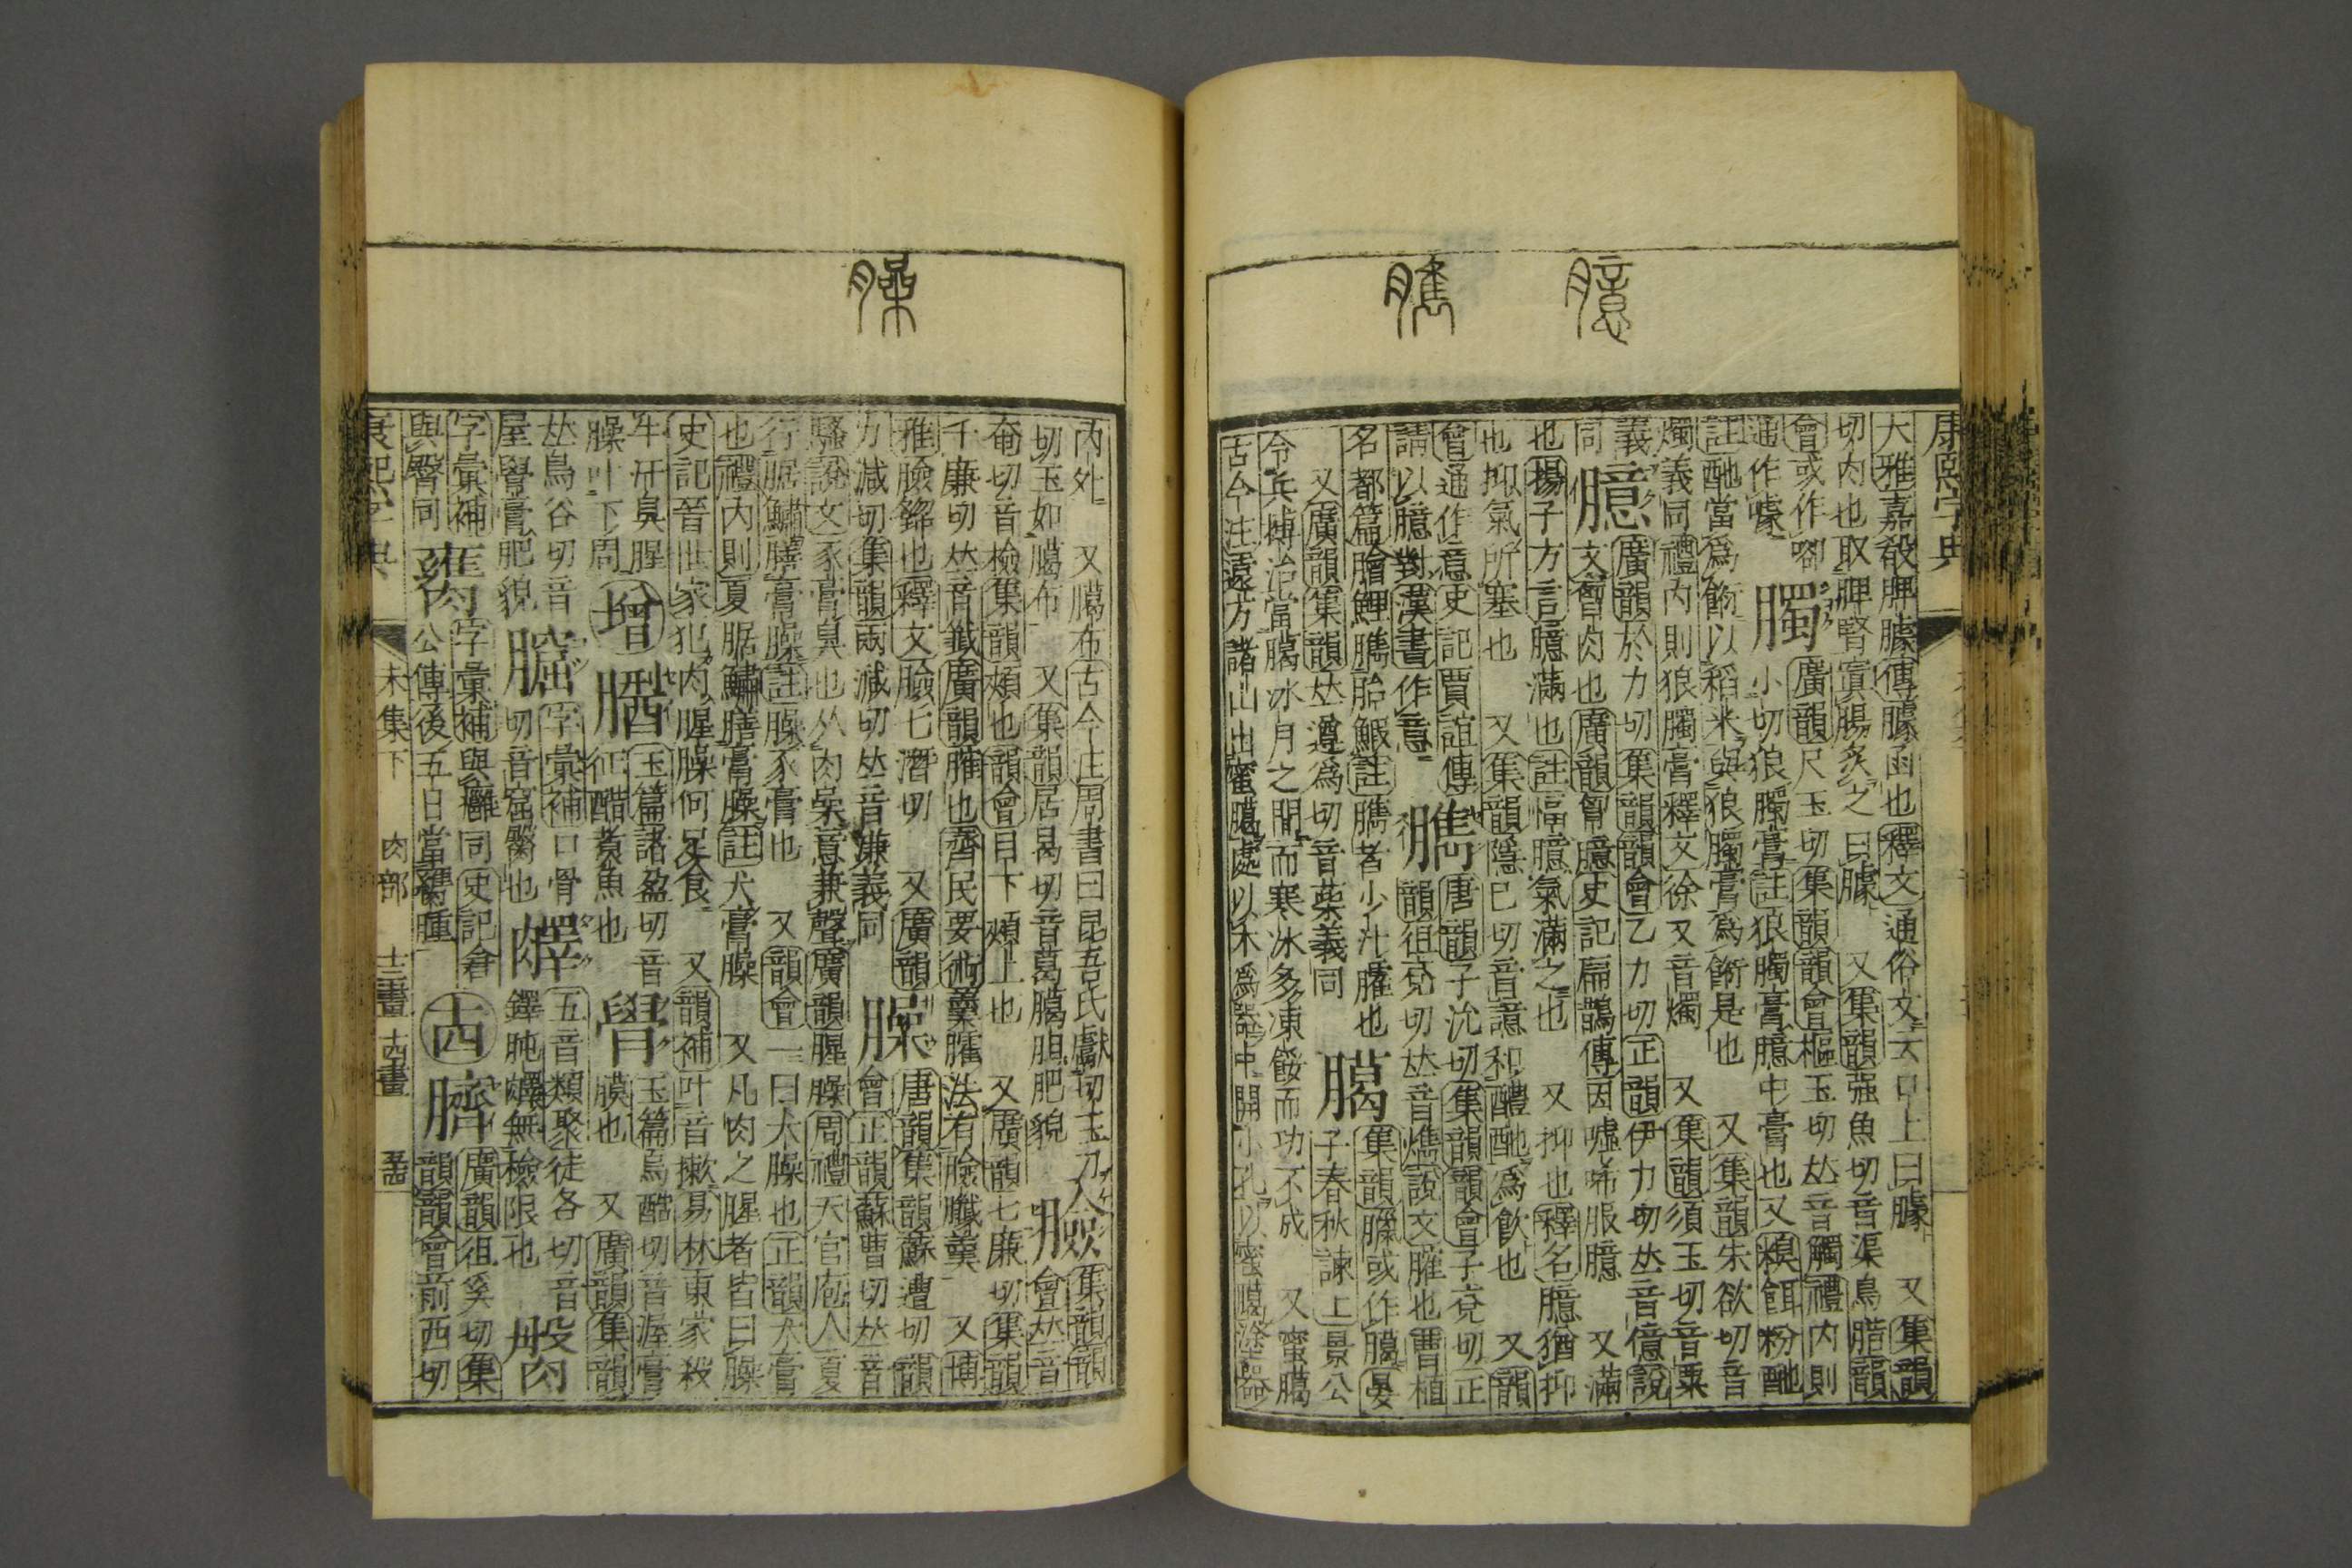 臆
臇
康熙字典
大雅嘉殽脾臄傳臄函也釋文通俗文云口上曰臄 又集韻
切肉也取脾腎實腸炙之曰臄 又集韻强魚切音渠鳥腊韻
會或作 臅 廣韻尺玉切集韻韻會樞玉切𠀤音觸禮內則
通作噱 小切狼臅膏註狼臅膏臆中膏也又糗餌粉酏
註酏當爲䬳以稻米與狼臅膏爲䬳是也 又集韻朱欲切音
燭義同禮內則狼臅膏釋文徐又音燭 又集韻須玉切音粟
義 臆 廣韻於力切集韻韻會乙力切正韻伊力切𠀤音億說
同 文肉也廣韻匈臆史記扁鵲傳因噓唏服臆 又滿
也揚子方言臆滿也註愊臆氣滿之也 又抑也釋名臆猶抑
也抑氣所塞也 又集韻隱已切音譩和醴酏爲飮也 又韻
會通作意史記賈誼傳 臇 唐韻子沇切集韻韻會子兗切正
請以臆對漢書作意 韻徂兗切𠀤音說文臛也曹植
名都篇膾鯉臇胎鰕註臇者少汁臛也 臈 集韻臘或作臈晏
又廣韻集韻𠀤遵爲切音義同 子春秋諫上景公
令兵摶治當臈冰月之閒而寒冰多凍餒而功不成 又蜜臈
古今注遠方諸山出蜜臈處以木爲器中開小孔以蜜臈塗器
臊
內外 又臈布古今注周書曰昆吾氏獻切玉刀 臉 集韻韻
切玉如臈布 又集韻居曷切音葛臈胆肥貌 會𠀤音
奄切音檢集韻頰也韻會目下頰上也 又廣韻七廉切集韻
千廉切𠀤音籤廣韻臛也齊民要術羹臛法有臉羹 又博
雅臉也釋文臉七潛切 又廣韻 臊 唐韻集韻蘇遭切韻
力減切集韻兩減切𠀤音義同 會正韻蘇曹切𠀤音
騷說文豕膏臭也从肉喿聲廣韻腥臊周禮天官庖人夏
行腒鱐膳膏臊註臊豕膏也 又韻會一曰犬臊也正韻犬膏
也禮內則夏腒鱐膳膏臊註犬膏臊 又凡肉之腥者皆曰臊
史記晉世家犯肉腥臊何足食 又韻補叶音擻易林東家殺
牛汙臭腥 增 玉篇諸盈切音 玉篇烏酷切音渥膏
臊叶下周 征醋煑魚也 膜也 又廣韻集韻
𠀤烏谷切音 字彙補口骨 五音類聚徒各切音
屋膏肥貌 切音窟臀也 鐸肫無檢限也
字彙補 字彙補與同史記倉 廣韻徂奚切集
與臀同 公傳後五日當臃腫 韻韻會前西切
臗 膥 十四 臍
康熙字典 未集下 肉部 十三畫 十四畫